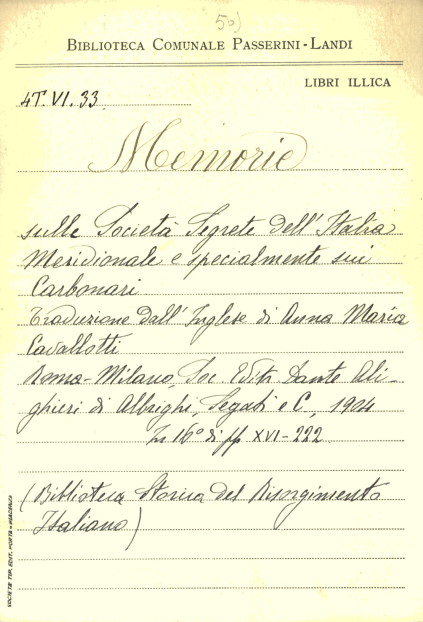 50)
BIBLIOTECA COMUNALE PASSERINI-LANDI
LIBRI ILLICA
4T.VI.33
Memorie
sulle Società Segrete dell'Italia
Meridionale e specialmente sui
Carbonari
Traduzione dall'Inglese di Anna Maria
Cavallotti
Roma-Milano, Soc. Editr. Dante Ali-
ghieri di Albrighi, Segati e C., 1904
In 16° di pp XVI-222
(Biblioteca Storica del Risorgimento
Italiano)
SOCIETÀ TIP. EDIT. PORTA - PIACENZA